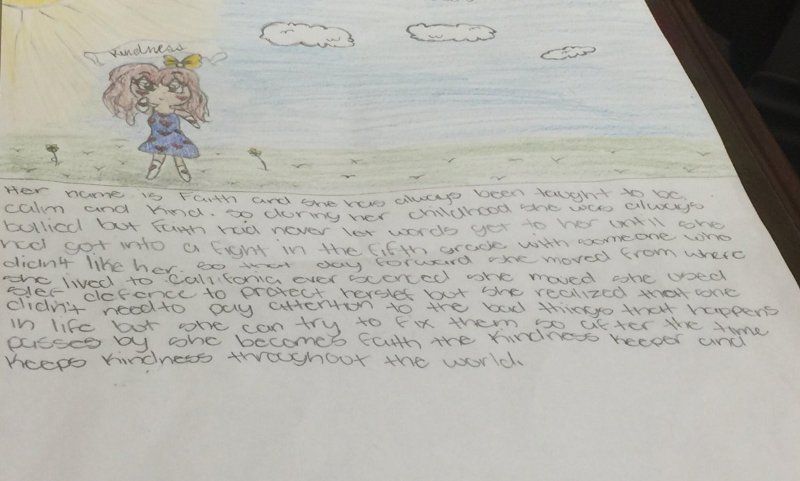 Kindness
Her name is Faith and she has always been taught to be
calm and kind. so during her childhood she was always
bullied but Faith had never let words get to her until she
had got into a fight in the fifth grade with someone who
didn't like her. so that day forward she moved from where
she lived to California, ever scenced she moved she used
slef defence to protect herslef but she realized that she
didn't need to pay attention to the bad things that happens
in life but she can try to fix them so after the time
passes by she becomes Faith the kindness keeper and
keeps kindness throughout the world.